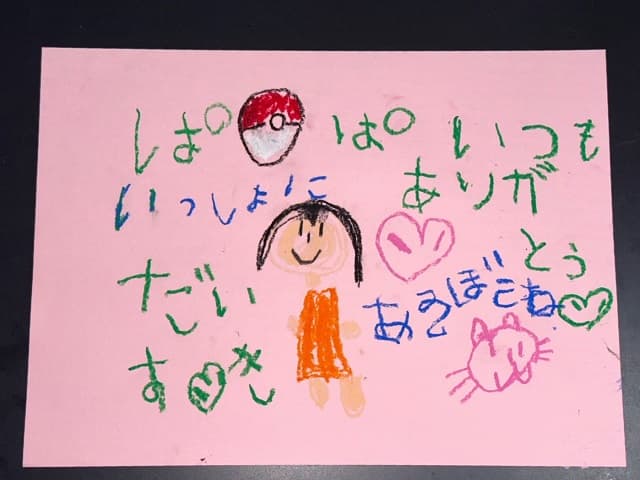 ぱ ぱ いつも
ありが
とう
いっしょに
あそぼうね
だい
すき